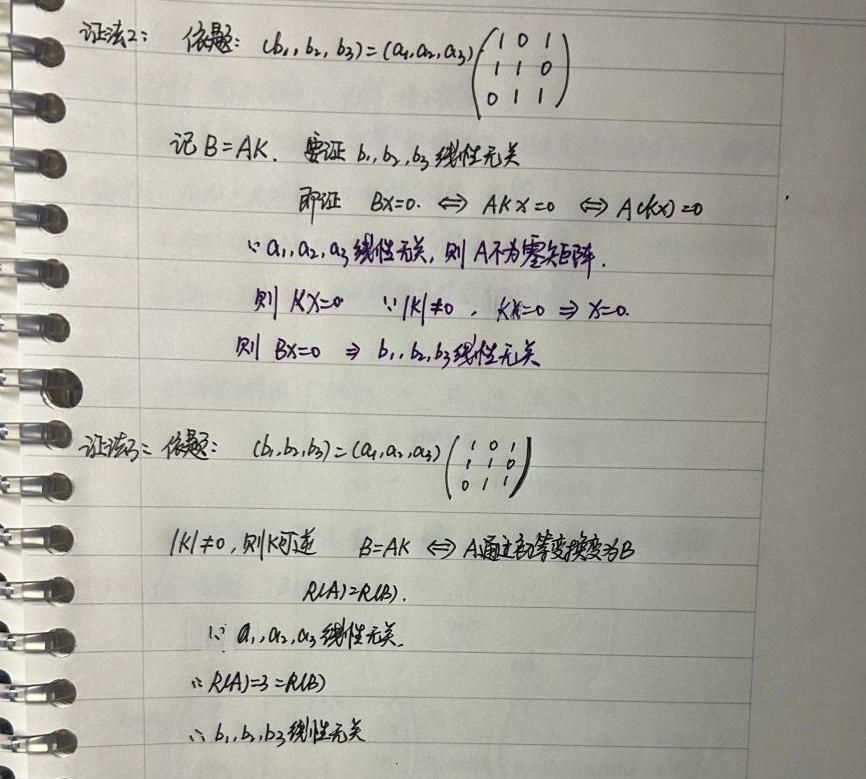 证法2: 依题: (b₁, b₂, b₃) = (a₁, a₂, a₃) (1 0 1
1 1 0
0 1 1)
记 B=AK. 要证 b₁, b₂, b₃ 线性无关
即证 Bx=0. ⇔ AKx=0 ⇔ A(Kx)=0
∵ a₁, a₂, a₃ 线性无关, 则 A不为零矩阵.
则 Kx=0 ∵ |K|≠0, Kx=0 ⇒ x=0.
则 Bx=0 ⇒ b₁, b₂, b₃ 线性无关
证法3: 依题: (b₁, b₂, b₃) = (a₁, a₂, a₃) (1 0 1
1 1 0
0 1 1)
|K|≠0, 则K可逆 B=AK ⇔ A通过初等变换变为B
R(A)=R(B).
∵ a₁, a₂, a₃ 线性无关.
∴ R(A)=3=R(B)
∴ b₁, b₂, b₃ 线性无关